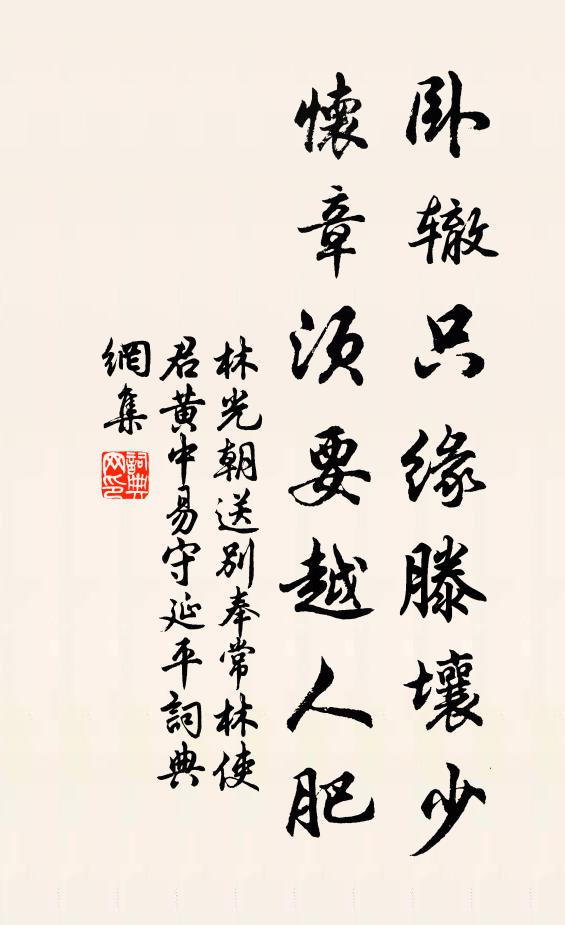 卧辙只缘滕壤少
懷章须要越人肥
林光朝送别奉常林使
君黄中易守延平詞典
網集
詞典網印